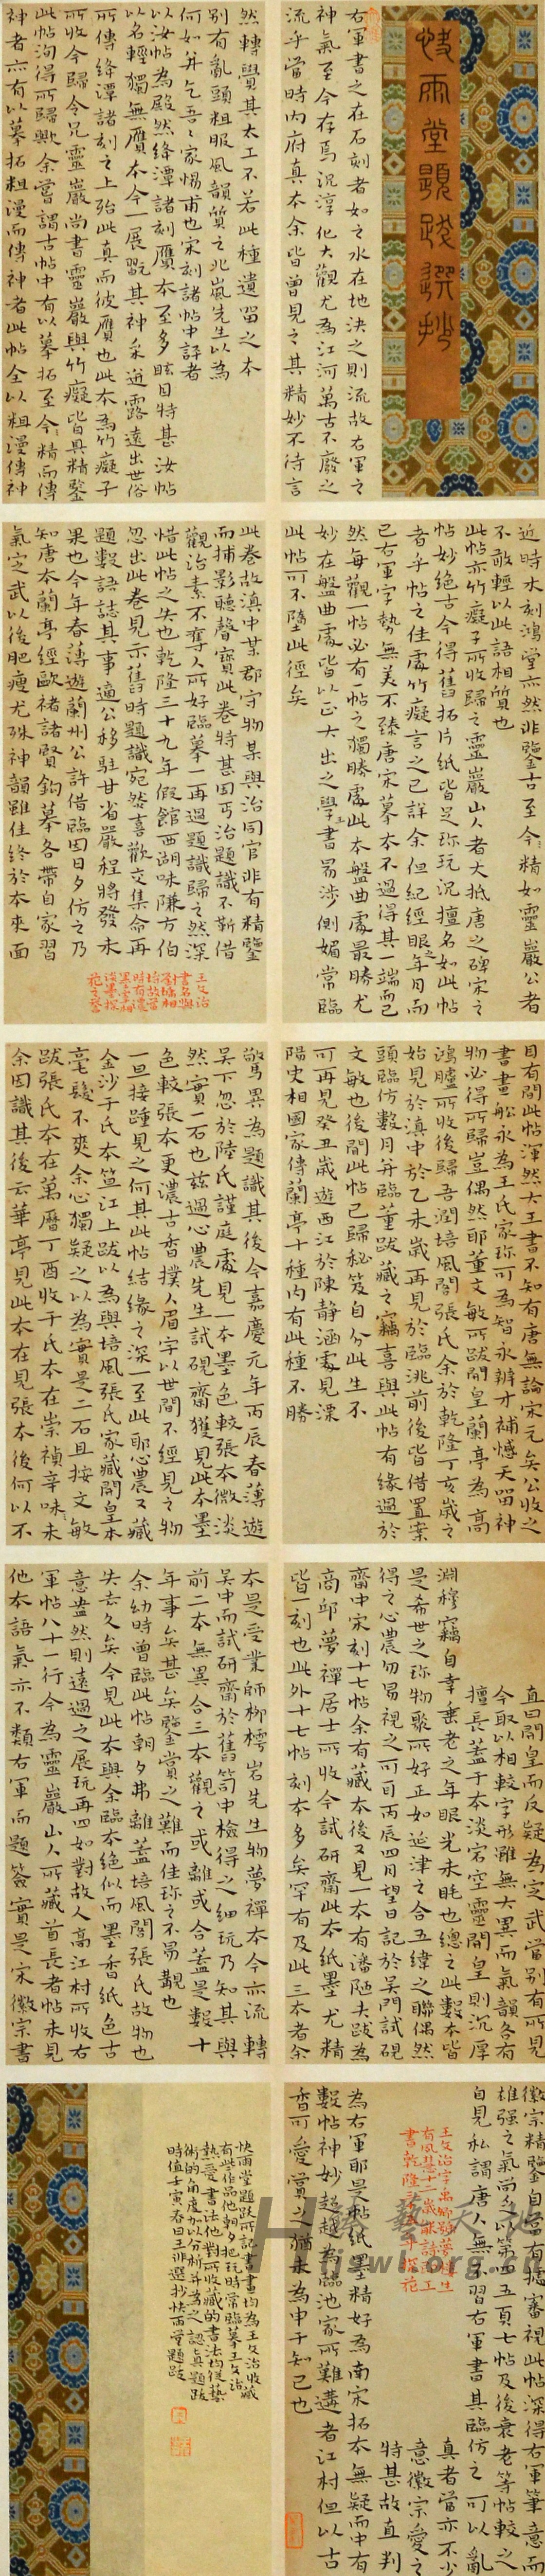 快雨堂題跋選抄
右軍書之在石刻者如之水在地決之則流故右軍之
神氣至今存焉況淳化大觀尤為江河萬古不廢之
流乎當時內府真本余皆曾見之其精妙不待言
然轉覺其太工不若此種遺留之本
別有亂頭粗服風韻質之兆嵐先生以為
何如并乞吾家惕甫也宋刻諸帖中評者
以汝帖為殿然絳潭諸刻贋本至多眩目特甚汝帖
以名輕獨無贋本今一展翫其神采迥露遠出世俗
所傳絳潭諸刻之上殆此真而彼贋也此本為竹癡子
所收今歸令兄靈巖尚書靈巖與竹癡皆具精鑒
此帖洵得所歸歟余嘗謂古帖中有以摹拓至今精而傳
神者亦有以摹拓粗漫而傳神者此帖全以粗漫傳神
近時水刻鴻堂亦然非鑒古至今精如靈巖公者
不敢輕以此語相質也
此帖亦竹癡子所收歸之靈巖山人者大抵唐之碑宋之
帖妙絕古今得舊拓片紙皆足珍玩況擅名如此帖
者乎帖之佳處竹癡言之已詳余但紀經眼之年月而
已右軍字勢無美不臻唐宋摹本不過得其一端而已
然每觀一帖必有帖之獨勝處此本盤曲處最勝尤
妙在盤曲處皆以正大出之學王書易涉側媚常臨
此帖可不墮此徑矣
此卷故滇中某郡守物某與治同官非有精鑒
而捕影聽聲寶此卷特甚因丐治題識不靳借
觀治素不奪人所好臨摹一再過題識歸之然深
惜此帖之失也乾隆三十九年假館西湖味隒方伯
忽出此卷見示舊時題識宛然喜歡交集命再
題數語誌其事適公移駐甘省嚴程將發未
果也今年春薄遊蘭州公許借臨因日夕仿之乃
知唐本蘭亭經歐褚諸賢鉤摹各帶自家習
氣定武以後肥瘦尤殊神韻雖佳終於本來面
目有間此帖渾然大王書不知有唐無論宋元矣公收之
書畫船永為王氏家珍可為智永辨才補憾天留神
物必得所歸豈偶然耶董文敏所跋開皇蘭亭為高
鴻臚所收後歸吾潤培風閣張氏余於乾隆丁亥歲之
始見於滇中於乙未歲再見於臨洮前後皆借置案
頭臨仿數月并臨董跋藏之竊喜與此帖有緣過於
文敏也後聞此帖已歸秘笈自分此生不
可再見癸丑歲遊西江於陳靜涵處見溧
陽史相國家傳蘭亭十種內有此種不勝
驚異為題識其後今嘉慶元年丙辰春薄遊
吳下忽於陸氏謹庭處見一本墨色較張本微淡
然實一石也茲過心農先生試硯齋獲見此本墨
色較張本更濃古香撲人眉宇以世間不經見之物
一旦接踵見之何其此帖結緣之深一至此耶心農又藏
金沙于氏本笪江上跋以為與培風張氏家藏開皇本
毫髮不爽余心獨疑之以為實是二石且按文敏
跋張氏本在萬曆丁酉收于氏本在崇禎辛味未
余因識其後云華亭見此本在見張本後何以不
直曰開皇而反疑為定武當別有所見
今取以相較字形雖無大異而氣韻各有
擅長蓋于本淡宕空靈開皇則沉厚
淵穆竊自幸垂老之年眼光未眊也總之此數本皆
是希世之珍物聚所好正如延津之合五緯之聯偶然
得之心農勿易視之可耳丙辰四月望日記於吳門試硯
齋中宋刻十七帖余有藏本後又見一本有潘陋夫跋為
商邱夢禪居士所收今試研齋此本紙墨尤精
皆一刻也此外十七帖刻本多矣罕有及此三本者余
本是受業師柳樗岩先生物夢禪本今亦流轉
吳中而試研齋於舊笥中檢得之細玩乃知其與
前二本無異合三本觀之或離或合蓋是數十
年事矣甚矣鑒賞之難而佳珍之不易覯也
余幼時曾臨此帖朝夕弗離蓋培風閣張氏故物也
失去久矣今見此本與余臨本絕似而墨香紙色古
意盎然則遠過之展玩再四如對故人高江村所收右
軍帖八十一行今為靈巖山人所藏首長者帖未見
他本語氣亦不類右軍而題簽實是宋徽宗書
徽宗精鑒自當有據審視此帖深得右軍筆意而
雄強之氣尚多以第四五頁七帖及後衰老等帖較之
自見私謂唐人無不習右軍書其臨仿之可以亂
真者當亦不少
意徽宗愛之
特甚故直判
為右軍耶是帖紙墨精好為南宋拓本無疑而中有
數帖神妙超越為臨池家所難遘者江村但以古
香可愛賞之猶未為申于知己也
快雨堂題跋所記書畫均為王文治收藏
有些作品他朝夕把玩時常臨摹王文治
熱愛書法他對所收藏的書法均從藝
術的角度加以分析并為之認真題跋
時值壬寅春日王非選抄快雨堂題跋